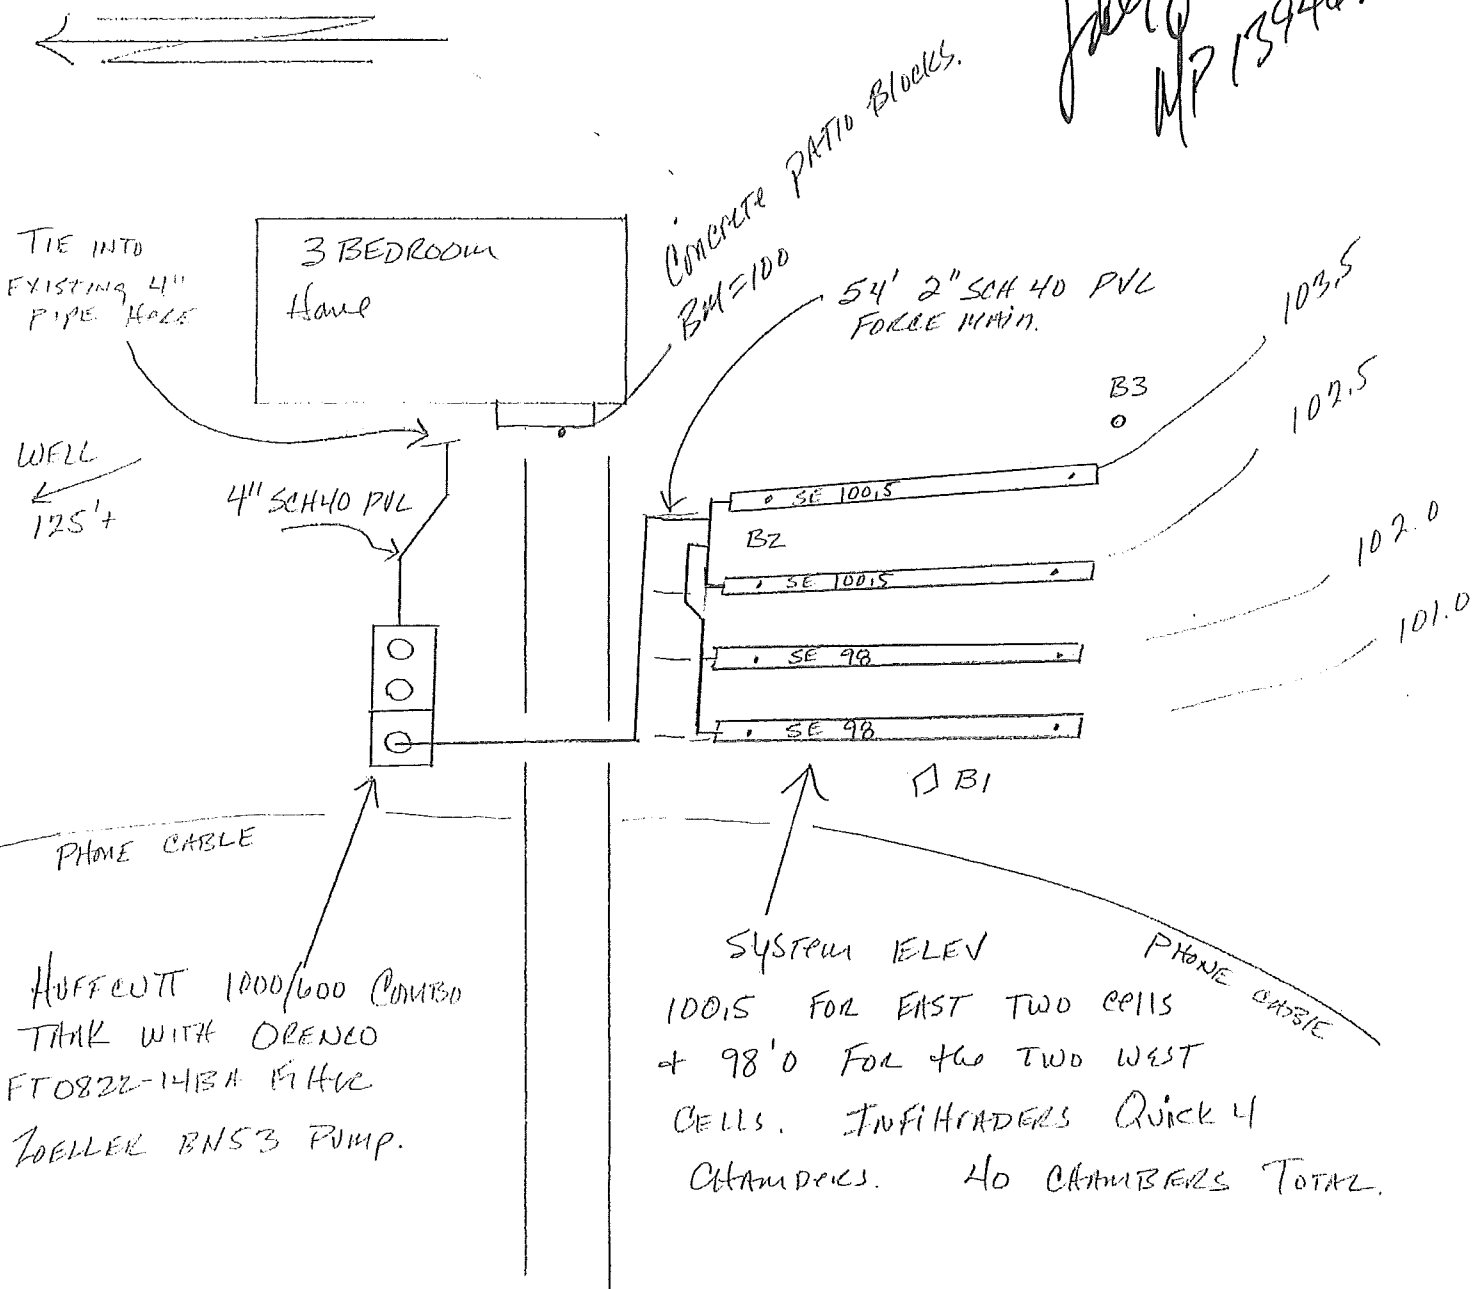 MP 1394
Concrete PATIO Blocks.
BM=100
TIE INTO
EXISTING 4"
PIPE HERE
3 BEDROOM
Home
54' 2" SCH 40 PVC
FORCE MAIN.
103.5
B3
102.5
WELL
125'+
4" SCH40 PVC
SE 100.5
B2
SE 100.5
102.0
101.0
SE 98
SE 98
B1
PHONE CABLE
PHONE CABLE
HUFFCUTT 1000/600 COMBO
TANK WITH ORENCO
FT0822-14BA Filter
ZOELLER BN53 PUMP.
SYSTEM ELEV
100.5 FOR EAST TWO CELLS
+ 98'0 FOR the TWO WEST
CELLS. INFILTRADERS QUICK 4
CHAMBERS. 40 CHAMBERS TOTAL.